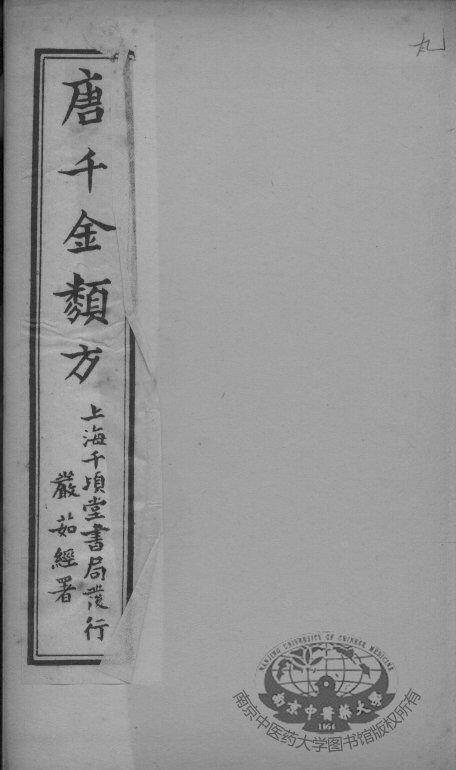 九
唐千金類方
上海千頃堂書局發行
嚴茹經署
NANJING UNIVERSITY OF CHINESE MEDICINE
南京中醫藥大學
1954
南京中医药大学图书馆版权所有